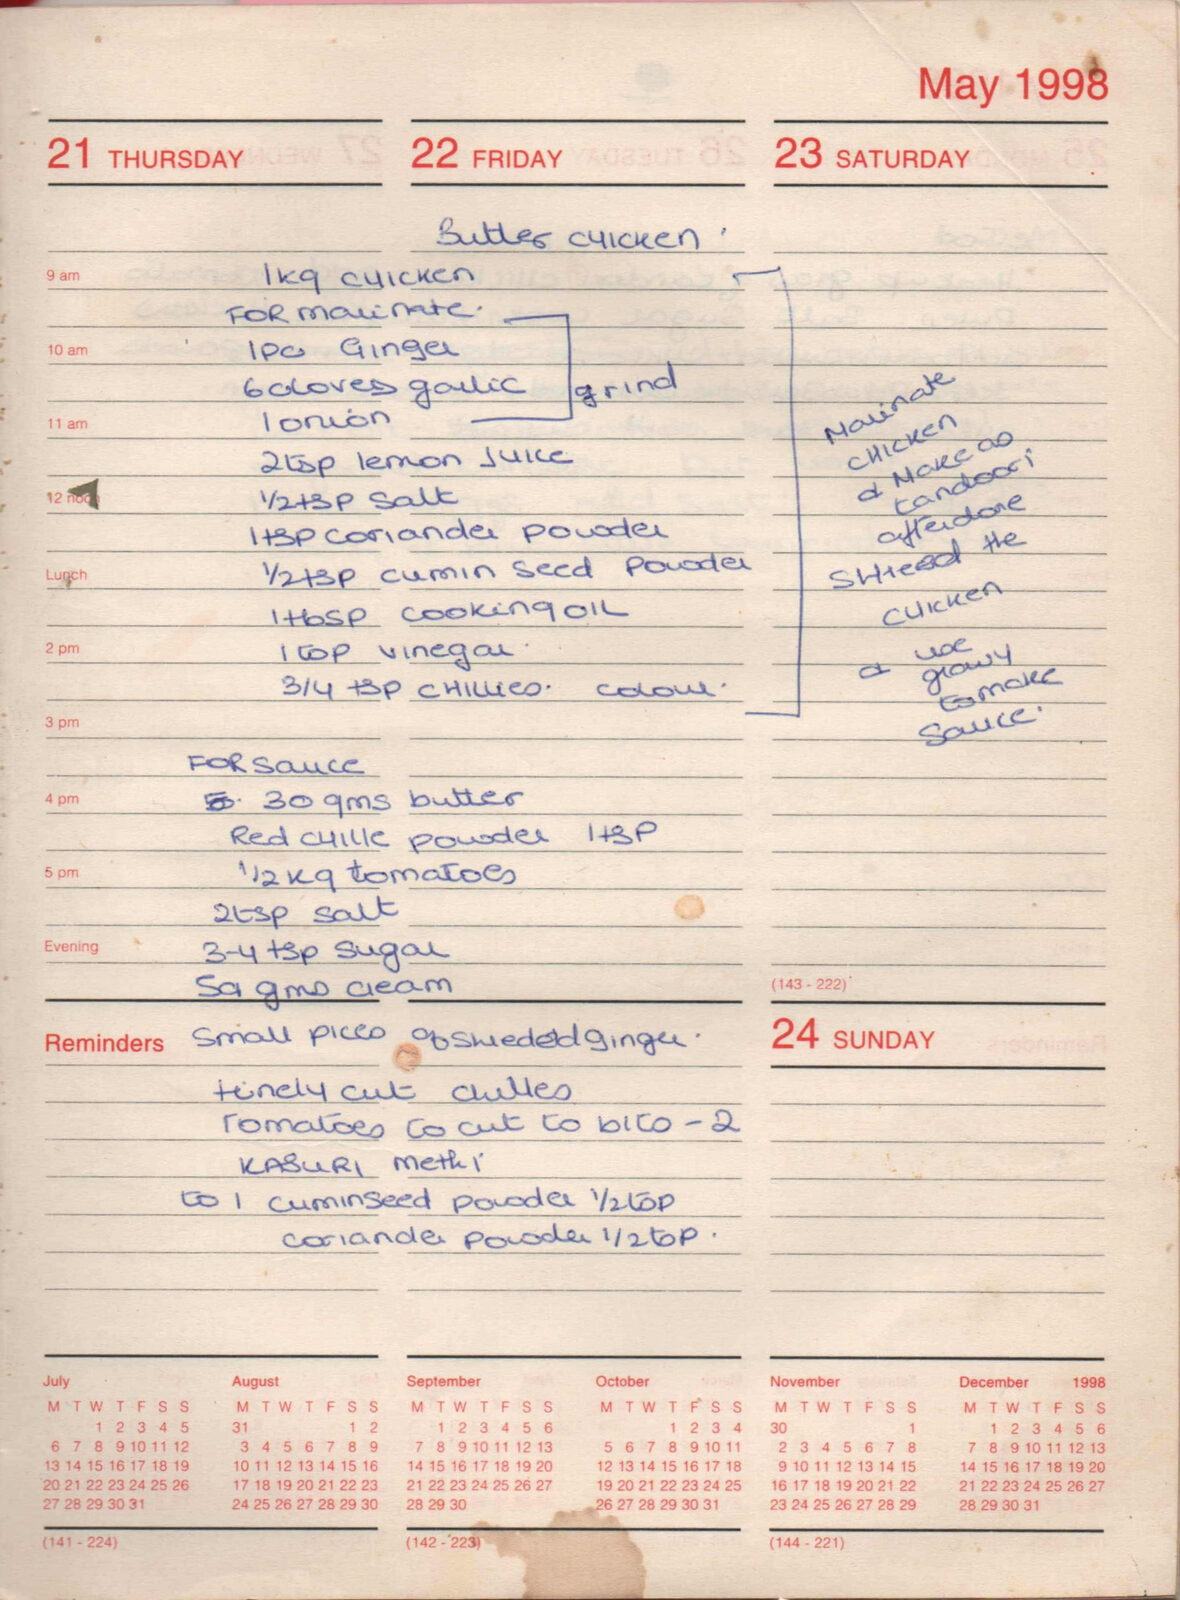 May 1998
21 THURSDAY
22 FRIDAY
23 SATURDAY
Butter CHICKEN
9 am
1kg CHICKEN
FOR Marinate.
10 am
1pc Ginger
6 cloves garlic
grind
11 am
1 onion
2tsp lemon JUICE
12 noon
1/2 tsp salt
1 tsp coriander powder
Lunch
1/2 tsp cumin seed Powder
1 tbsp cooking OIL
2 pm
1 tsp vinegar.
3/4 tsp CHILLIES. colour.
3 pm
Marinate
CHICKEN
& Make as
tandoori
after done
SHread the
CHICKEN
& use
gravy
to make
Sauce.
FOR Sauce
4 pm
30 gms butter
Red CHILLE powder 1 tsp
5 pm
1/2 kg tomatoes
2tsp salt
Evening
3-4 tsp sugar
gms cream
(143 - 222)
Reminders
Small piece of shreded ginger.
24 SUNDAY
finely cut chillies
Tomatoes to cut to bits - 2
KASURI Methi
to 1 cuminseed powder 1/2 tsp
coriander powder 1/2 tsp.
July
M T W T F S S
1 2 3 4 5
6 7 8 9 10 11 12
13 14 15 16 17 18 19
20 21 22 23 24 25 26
27 28 29 30 31
August
M T W T F S S
31 1 2
3 4 5 6 7 8 9
10 11 12 13 14 15 16
17 18 19 20 21 22 23
24 25 26 27 28 29 30
September
M T W T F S S
1 2 3 4 5 6
7 8 9 10 11 12 13
14 15 16 17 18 19 20
21 22 23 24 25 26 27
28 29 30
October
M T W T F S S
1 2 3 4
5 6 7 8 9 10 11
12 13 14 15 16 17 18
19 20 21 22 23 24 25
26 27 28 29 30 31
November
M T W T F S S
30 1
2 3 4 5 6 7 8
9 10 11 12 13 14 15
16 17 18 19 20 21 22
23 24 25 26 27 28 29
December 1998
M T W T F S S
1 2 3 4 5 6
7 8 9 10 11 12 13
14 15 16 17 18 19 20
21 22 23 24 25 26 27
28 29 30 31
(141 - 224)
(142 - 223)
(144 - 221)